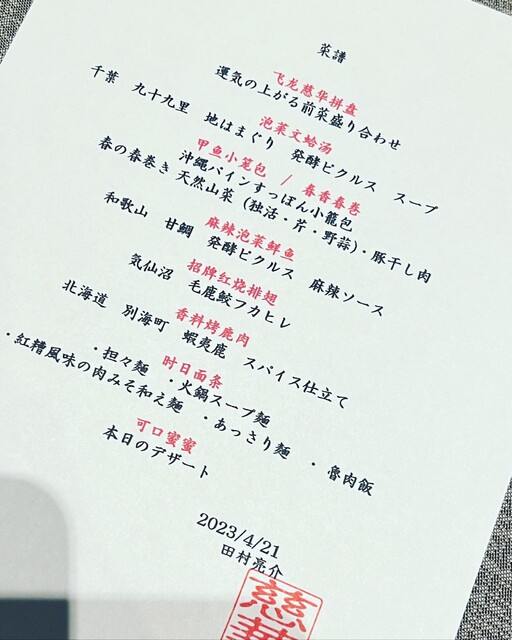 菜譜
飞龙慈华拼盘
運気の上がる前菜盛り合わせ
泡菜文蛤汤
千葉 九十九里 地はまぐり 発酵ピクルス スープ
甲鱼小笼包 / 春香春卷
沖縄パインすっぽん小籠包
春の春巻き 天然山菜（独活・芹・野蒜）・豚干し肉
麻辣泡菜鲜鱼
和歌山 甘鯛 発酵ピクルス 麻辣ソース
招牌红烧排翅
気仙沼 毛鹿鮫フカヒレ
香料烤鹿肉
北海道 別海町 蝦夷鹿 スパイス仕立て
时日面条
・担々麺 ・火鍋スープ麺 ・あっさり麺
・紅糟風味の肉みそ和え麺 ・魯肉飯
可口蜜蜜
本日のデザート
2023/4/21
田村亮介
慈華